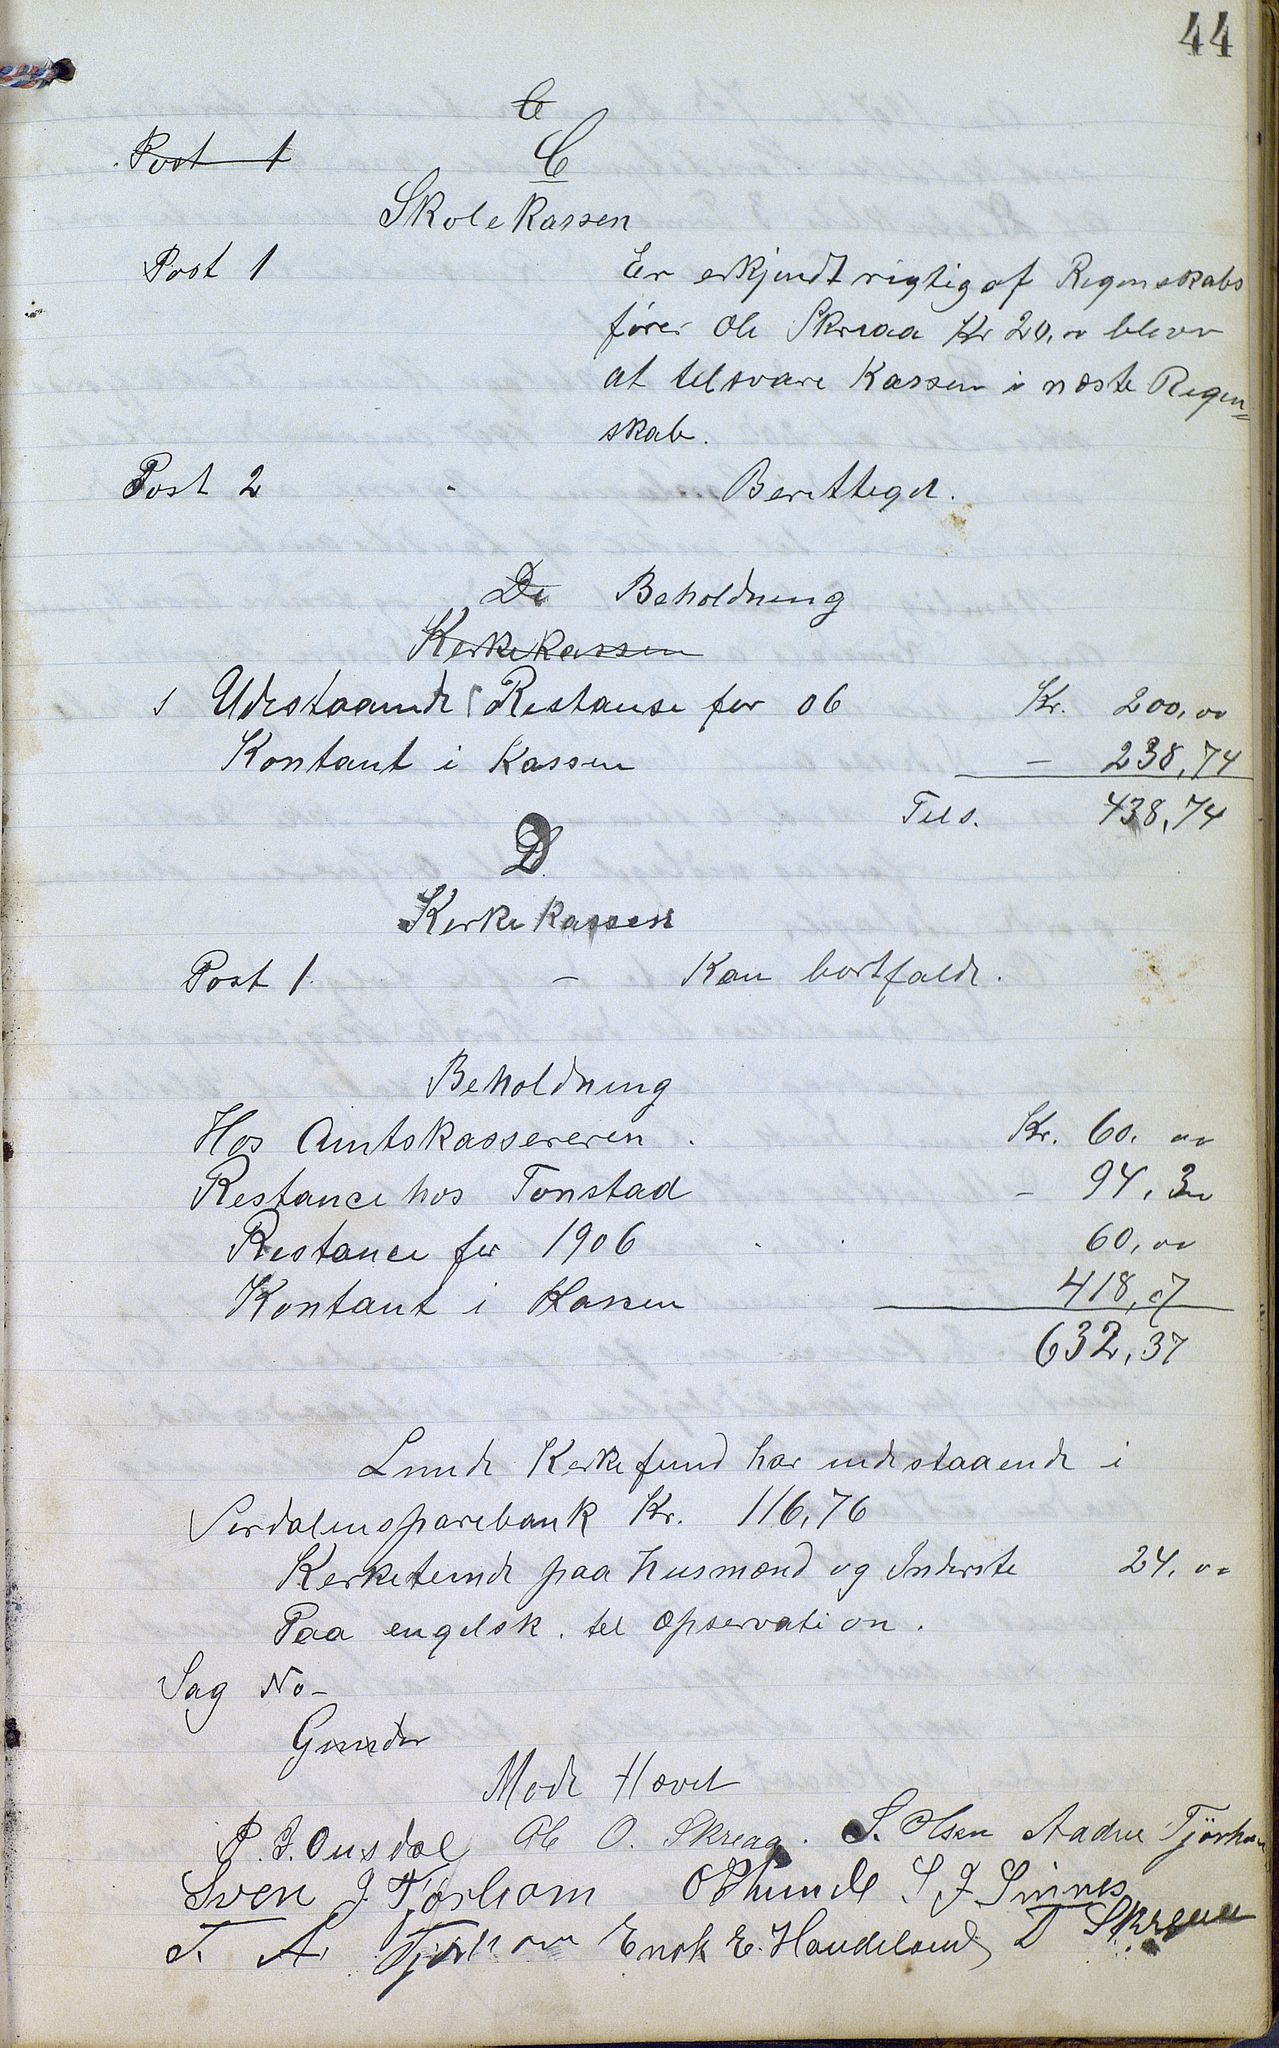 44
C
Post 1
C
Skolekassen
Post 1 Er erkjendt rigtig af Regenskabs
fører Ole Skreaa Kr 20,00 bliver
at tilsvare Kassen i næste Regen=
skab.
Post 2 Berettiget.
De Beholdning
Kerkekassen
1 Udestaaende Restanse for 06 Kr. 200,00
Kontant i Kassen – 238,74
Tils. 438,74
D
Kerkekassen
Post 1. – Kan bortfalde.
Beholdning
Hos Amtskassereren. Kr. 60,00
Restance hos Tonstad – 94,30
Restance for 1906 60,00
Kontant i Kassen 418,07
632,37
Lunde Kerkefund har indestaaende i
Serdalensparebank Kr. 116,76
Kerketiende paa husmænd og Inderste 24,00
Paa engelsk. tel Opservation.
Sag No–
Gunder
Mode Hævet
P. J. Ousdal Ole O. Skreaa. S. Olsen Aadne Tjørhom
Sven J. Tjørhom O Lunde S J Sinnes
T. A. Tjørhom Enok E. Haudeland D Skreaa